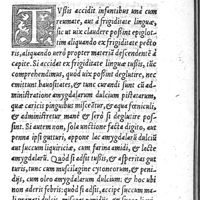 TVssis accidit infantibus unà cum
reumate, aut à frigiditate linguæ,
sic ut uix claudere possint epiglot-
tim aliquando ex frigiditate pecto
ris, aliquando uerò propter materiā descendentē à
capite. Si accidat ex frigiditate linguæ tussis, tūc
comprehendimus, quod uix possint deglutire, nec
emittunt hanositates, & tunc curandi sunt cū ad-
ministratione amygdalarum dulcium pistatarum,
quæ caricis pinguibus misceātur, & aqua fœniculi,
& administretur mane & serò si deglutire possint.
Si autem non, solutione facta digito, aut
penna ipsi gutturi, appone lac amygdalarū dulciū
aut succum liquiritiæ, cum farina amidi, & lacte
amygdalarū. Quòd si adsit tussis, & asperitas gut
turis, tunc cum muscilagine cytoniorum, & peni-
dijs, cum oleo amygdalarum dulcium: & hoc ubi
non aderit febris: quod si adsit, accipe succum ma-